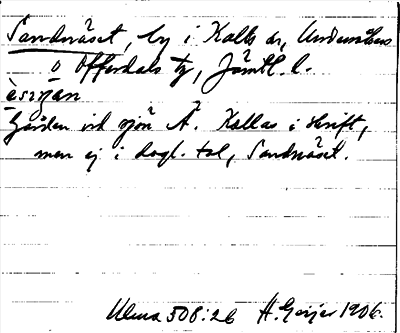 Sandnäset, by i Kalls sn, Undersåkers
o Offerdals tg, Jämtl. l.
Gården vid sjön Ä. Kallas i skrift,
men ej i dagl. tal, Sandnäset.
Ulma 508:26 H. Geijer 1906.